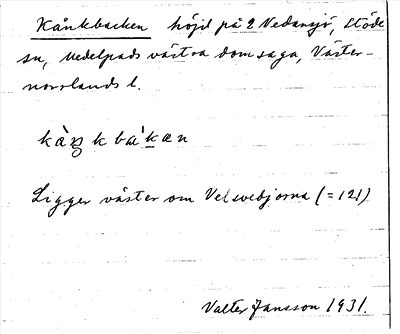 Kånkbacken höjd på 2 Vedansjö, Stöde
sn, Medelpads västra domsaga, Väster-
norrlands l.
Ligger väster om Velsvebjorna (= 121)
Valter Jansson 1931.